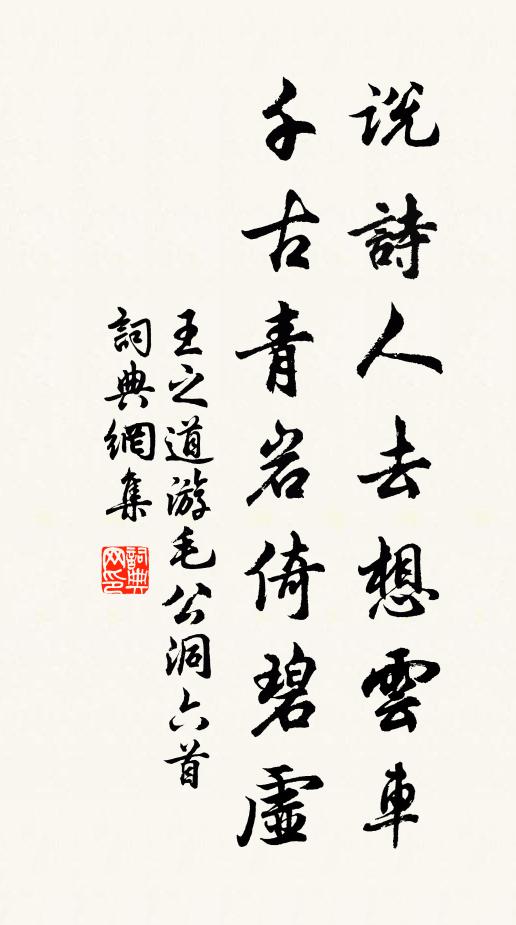 説詩人去想雲車
千古青岩倚碧虛
王之道游毛公洞六首
詞典網集
詞典
网印